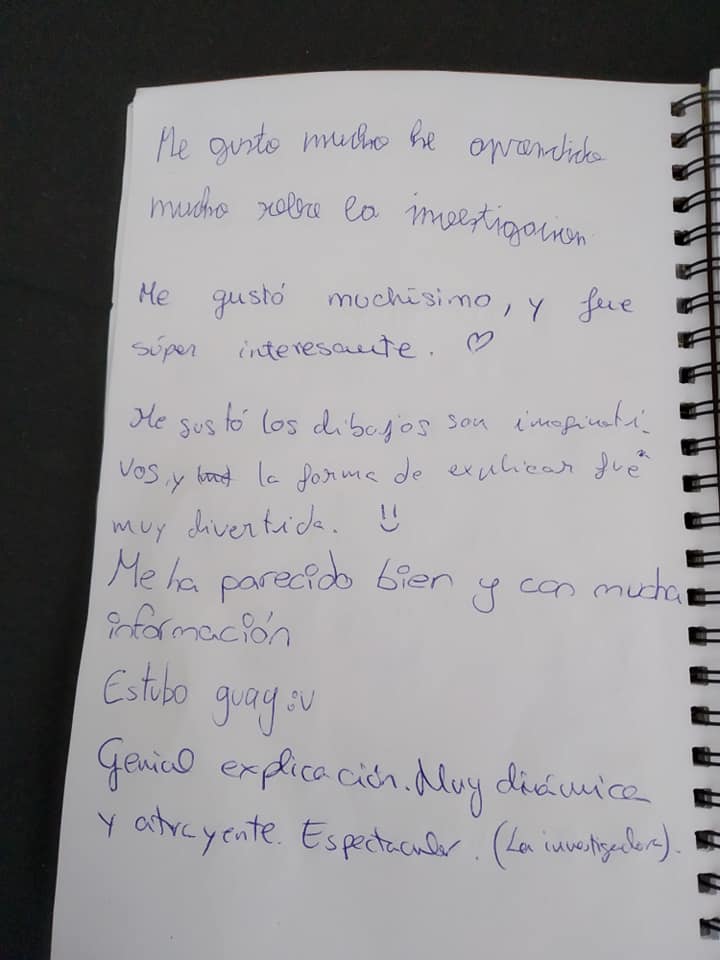 Me gusto mucho he aprendido
mucho sobre la investigacion
Me gustó muchísimo, y fue
súper interesante. ♡
Me gustó los dibajos son imaginati-
vos, y la forma de explicar fue
muy divertida.
Me ha parecido bien y con mucha
información
Estubo guay :v
Genial explicación. Muy dinámica
y atrayente. Espectacular. (La investigadora).